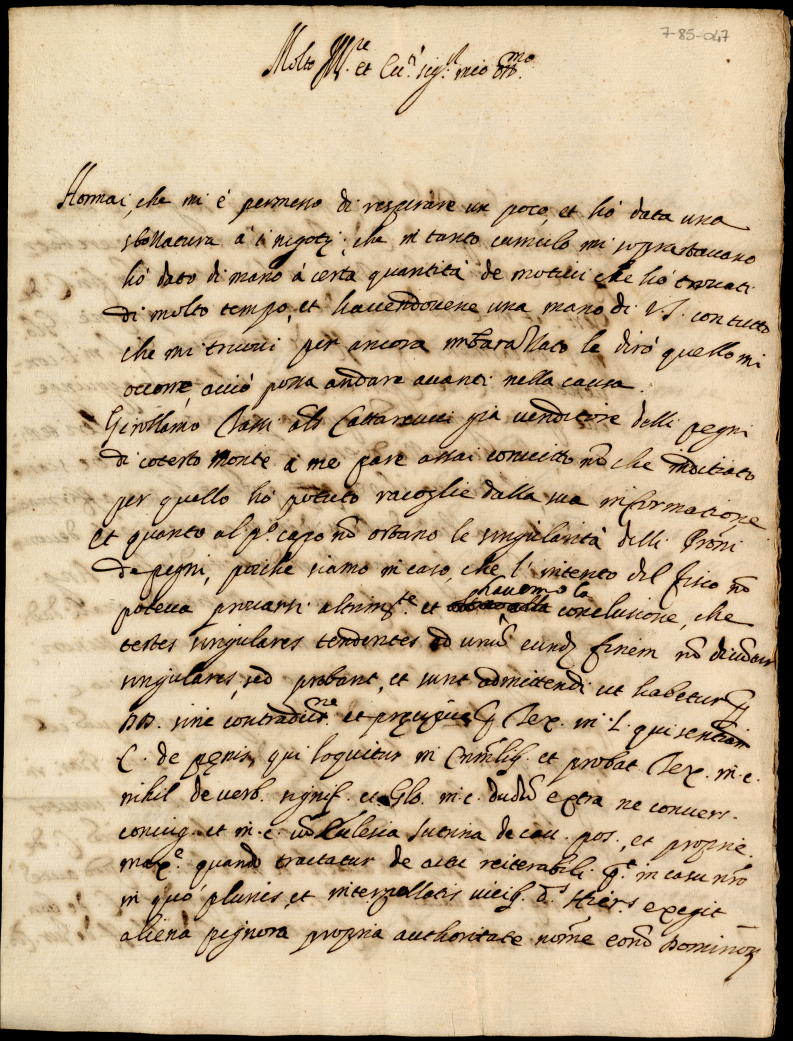 7-85-047
Molto Ill.re et Ecc. sig.r mio oss.mo
Hormai, che mi è permesso di respirare un poco, et hò data una
sbollatura à i negotij, che in tanto cumulo mi soprastavano
hò dato di mano à certa quantità de motivi che hò trovati
di molto tempo, et havendovene una mano di V.S. con tutto
che mi truovi per ancora imbarazzato le dirò quello mi
occorre, acciò possa andare avanti nella causa.
Girollamo Tassi als Cattarucci già venditore delli pegni
di cotesto Monte à me pare assai convitto nō che inditiato
per quello hò potuto racoglie dalla sua informatione
et quanto al p.o capo nō ostano le singularità delli Pr̄oni
de pegni, poiche siamo in caso, che l'intento del fisco nō
poteva provarsi altrim.te et havemo la conclusione, che
testes singulares tendentes ad unū eund finem nō dicūtur
singulares, sed probant, et sunt admittendi ut habetur
DD. sine contradict.ne et Tex. in L. qui sententiam
C. de pęnis, qui loquitur in Crim̄lib. et probat Tex. in c.
nihil de verb. signif. et Glo. in c. dudū extra ne convers.
coniug. et in c. Ecclesia Sutrina de cau. pos., et proprie.
max.e quando tractatur de actu reiterabili in casu nr̄o
in quo pluries, et interpellatis vicib. d.s Hier.s exegit
aliena pignora propria authoritate nom̄e eorū Dominor